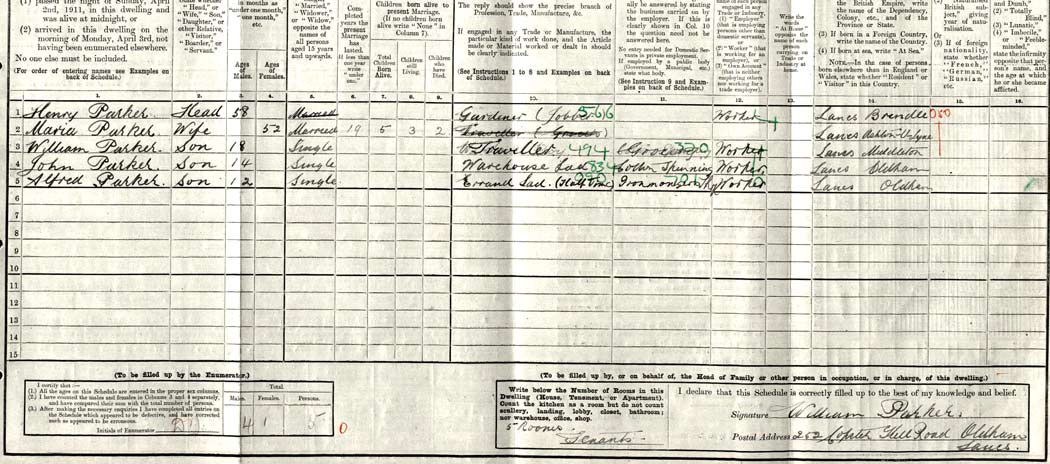 (1) passed the night of Sunday, April
2nd, 1911, in this dwelling and
was alive at midnight, or
(2) arrived in this dwelling on the
morning of Monday, April 3rd, not
having been enumerated elsewhere.
No one else must be included.
(For order of entering names see Examples on
back of Schedule.)
"Head," or
"Wife," "Son,"
"Daughter," or
other Relative,
"Visitor,"
"Boarder," or
"Servant."
in months as
"under one month,"
"one month,"
etc.
Ages
of
Males.
Ages
of
Females.
"Married,"
"Widower,"
or "Widow,"
opposite the
names of
all persons
aged 15 years
and upwards.
Com-
pleted
years the
present
Marriage
has
lasted.
If less than
one year
write
"under
one."
Children born alive to
present Marriage.
(If no children born
alive write "None" in
Column 7).
Total
Children
Born
Alive.
Children
still
Living.
Children
who
have
Died.
The reply should show the precise branch of
Profession, Trade, Manufacture, &c.
If engaged in any Trade or Manufacture, the
particular kind of work done, and the Article
made or Material worked or dealt in should
be clearly indicated.
(See Instructions 1 to 8 and Examples on back
of Schedule.)
ally be answered by stating
the business carried on by
the employer. If this is
clearly shown in Col. 10
the question need not be
answered here.
No entry needed for Domestic Ser-
vants in private employment.
If employed by a public body
(Government, Municipal, etc.)
state what body.
(See Instruction 9 and Exam-
ples on back of Schedule.)
engaged in any
Trade or Industry,
(1) "Employer"
(that is employing
persons other than
domestic servants),
or
(2) "Worker" (that
is working for an
employer), or
(3) "Own Account"
(that is neither
employing others
nor working for a
trade employer).
Write the
words
"At Home"
opposite the
name of each
person
carrying on
Trade or
Industry at
home.
the British Empire, write
the name of the Dependency,
Colony, etc., and of the
Province or State.
(3) If born in a Foreign Country,
write the name of the Country.
(4) If born at sea, write "At Sea."
NOTE.—In the case of persons
born elsewhere than in England or
Wales, state whether "Resident" or
"Visitor" in this Country.
British sub-
ject," giving
year of
natu-
ralisation.
Or
(3) If of foreign
nationality,
state whether
"French,"
"German,"
"Russian,"
etc.
and Dumb,"
(2) "Totally
Blind,"
(3) "Lunatic,"
(4) "Imbecile,"
or "Feeble-
minded,"
state the infirmity
opposite that per-
son's name, and
the age at which
he or she became
afflicted.
1. 2. 3. 4. 5. 6. 7. 8. 9. 10. 11. 12. 13. 14. 15. 16.
1 Henry Parker Head 58 Married Gardener (Jobber) 566 Worker Lancs Brindle 050
2 Maria Parker. Wife 52 Married 19 5 3 2 Lancs Ashton-U-Lyne
3 William Parker. Son 18 Single Traveller 494 (Grocery) 320 Worker Lancs Middleton
4 John Parker Son 14 Single Warehouse Lad 834 Cotton Spinning Worker Lancs Oldham
5 Alfred Parker. Son 12 Single Errand Lad. (Half Time) Worker Lancs Oldham
6
7
8
9
10
11
12
13
14
15
(To be filled up by the Enumerator.)
I certify that:—
(1.) All the ages on this Schedule are entered in the proper sex columns.
(2.) I have counted the males and females in Columns 3 and 4 separately,
and have compared their sum with the total number of persons.
(3.) After making the necessary enquiries I have completed all entries on
the Schedule which appeared to be defective, and have corrected
such as appeared to be erroneous.
Initials of Enumerator
Total.
Males. Females. Persons.
4 1 5
0
(To be filled up by, or on behalf of, the Head of Family or other person in occupation, or in charge, of this dwelling.)
Write below the Number of Rooms in this
Dwelling (House, Tenement, or Apartment).
Count the kitchen as a room but do not count
scullery, landing, lobby, closet, bathroom;
nor warehouse, office, shop.
5 Rooms
Tenants.
I declare that this Schedule is correctly filled up to the best of my knowledge and belief.
Signature William Parker.
Postal Address 252 Copster Hill Road Oldham
Lancs.